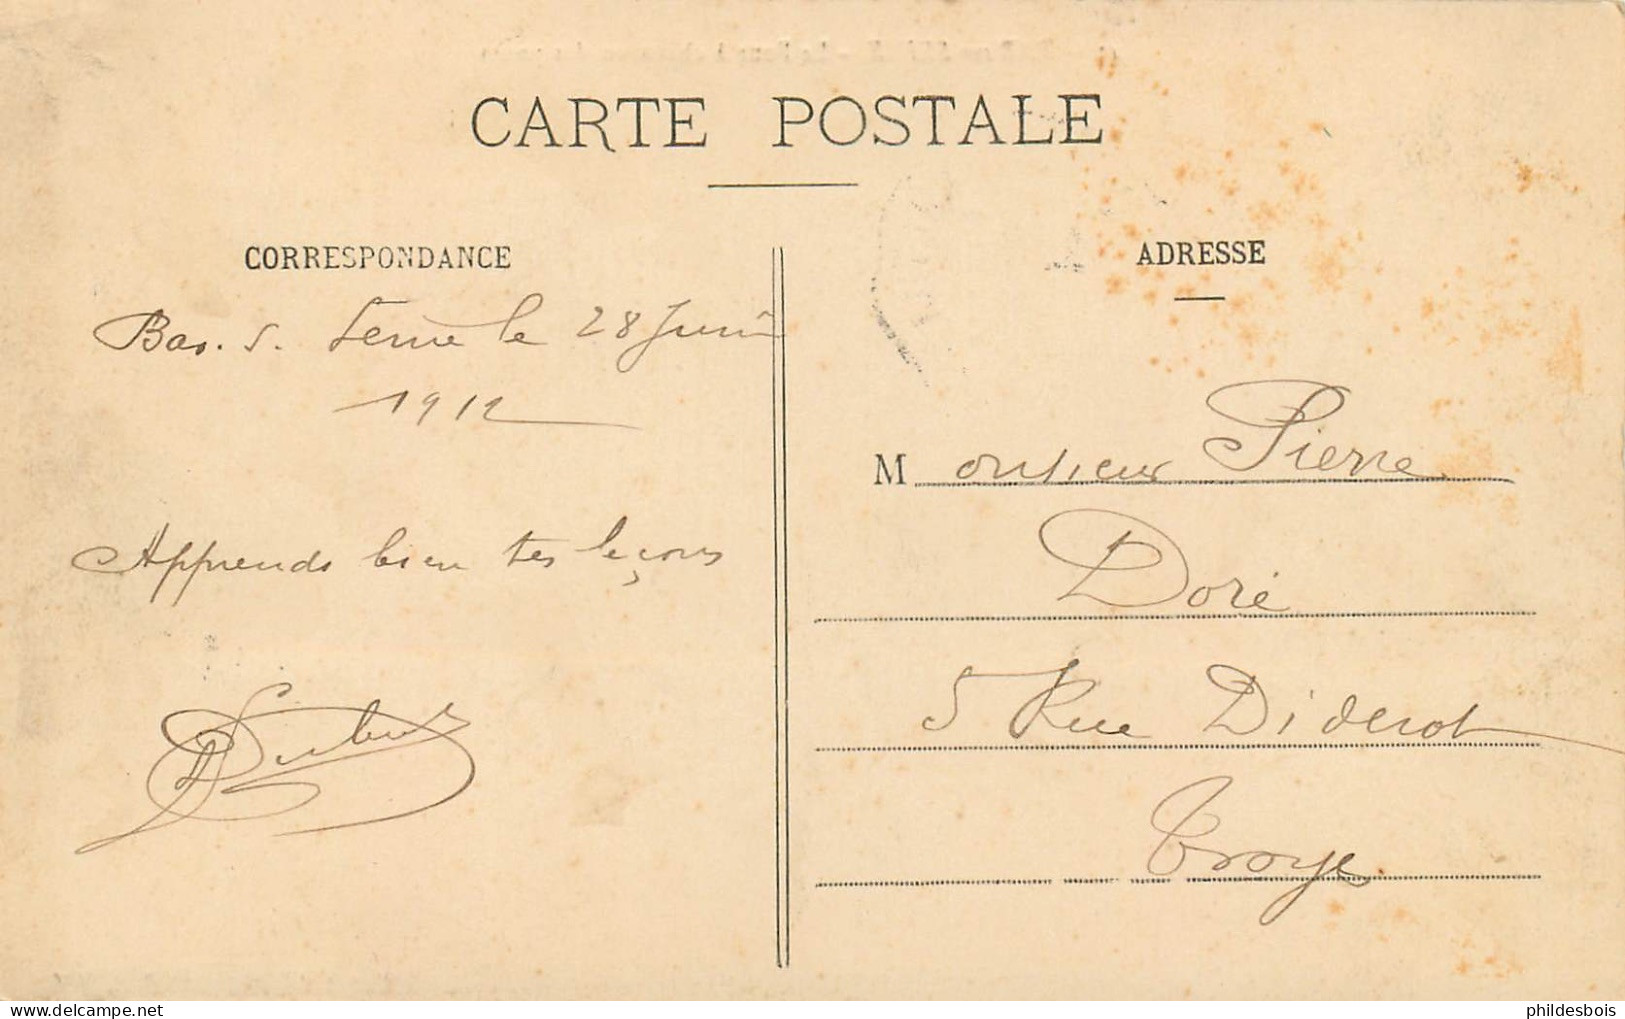 CARTE POSTALE
CORRESPONDANCE
Bar. S. Seine le 28 Juin
1912
Apprends bien tes leçons
ADRESSE
Monsieur Pierre
Doré
5 Rue Diderot
Troyes
phildesbois